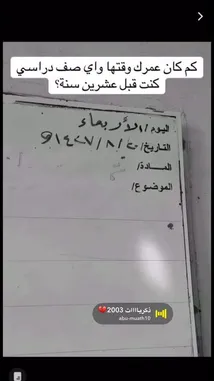 كم كان عمرك وقتها واي صف دراسي
كنت قبل عشرين سنة؟
اليوم/ الأربعاء
التاريخ/
المادة/
الموضوع/
ذكريااات 2003❤️
abo-muath10